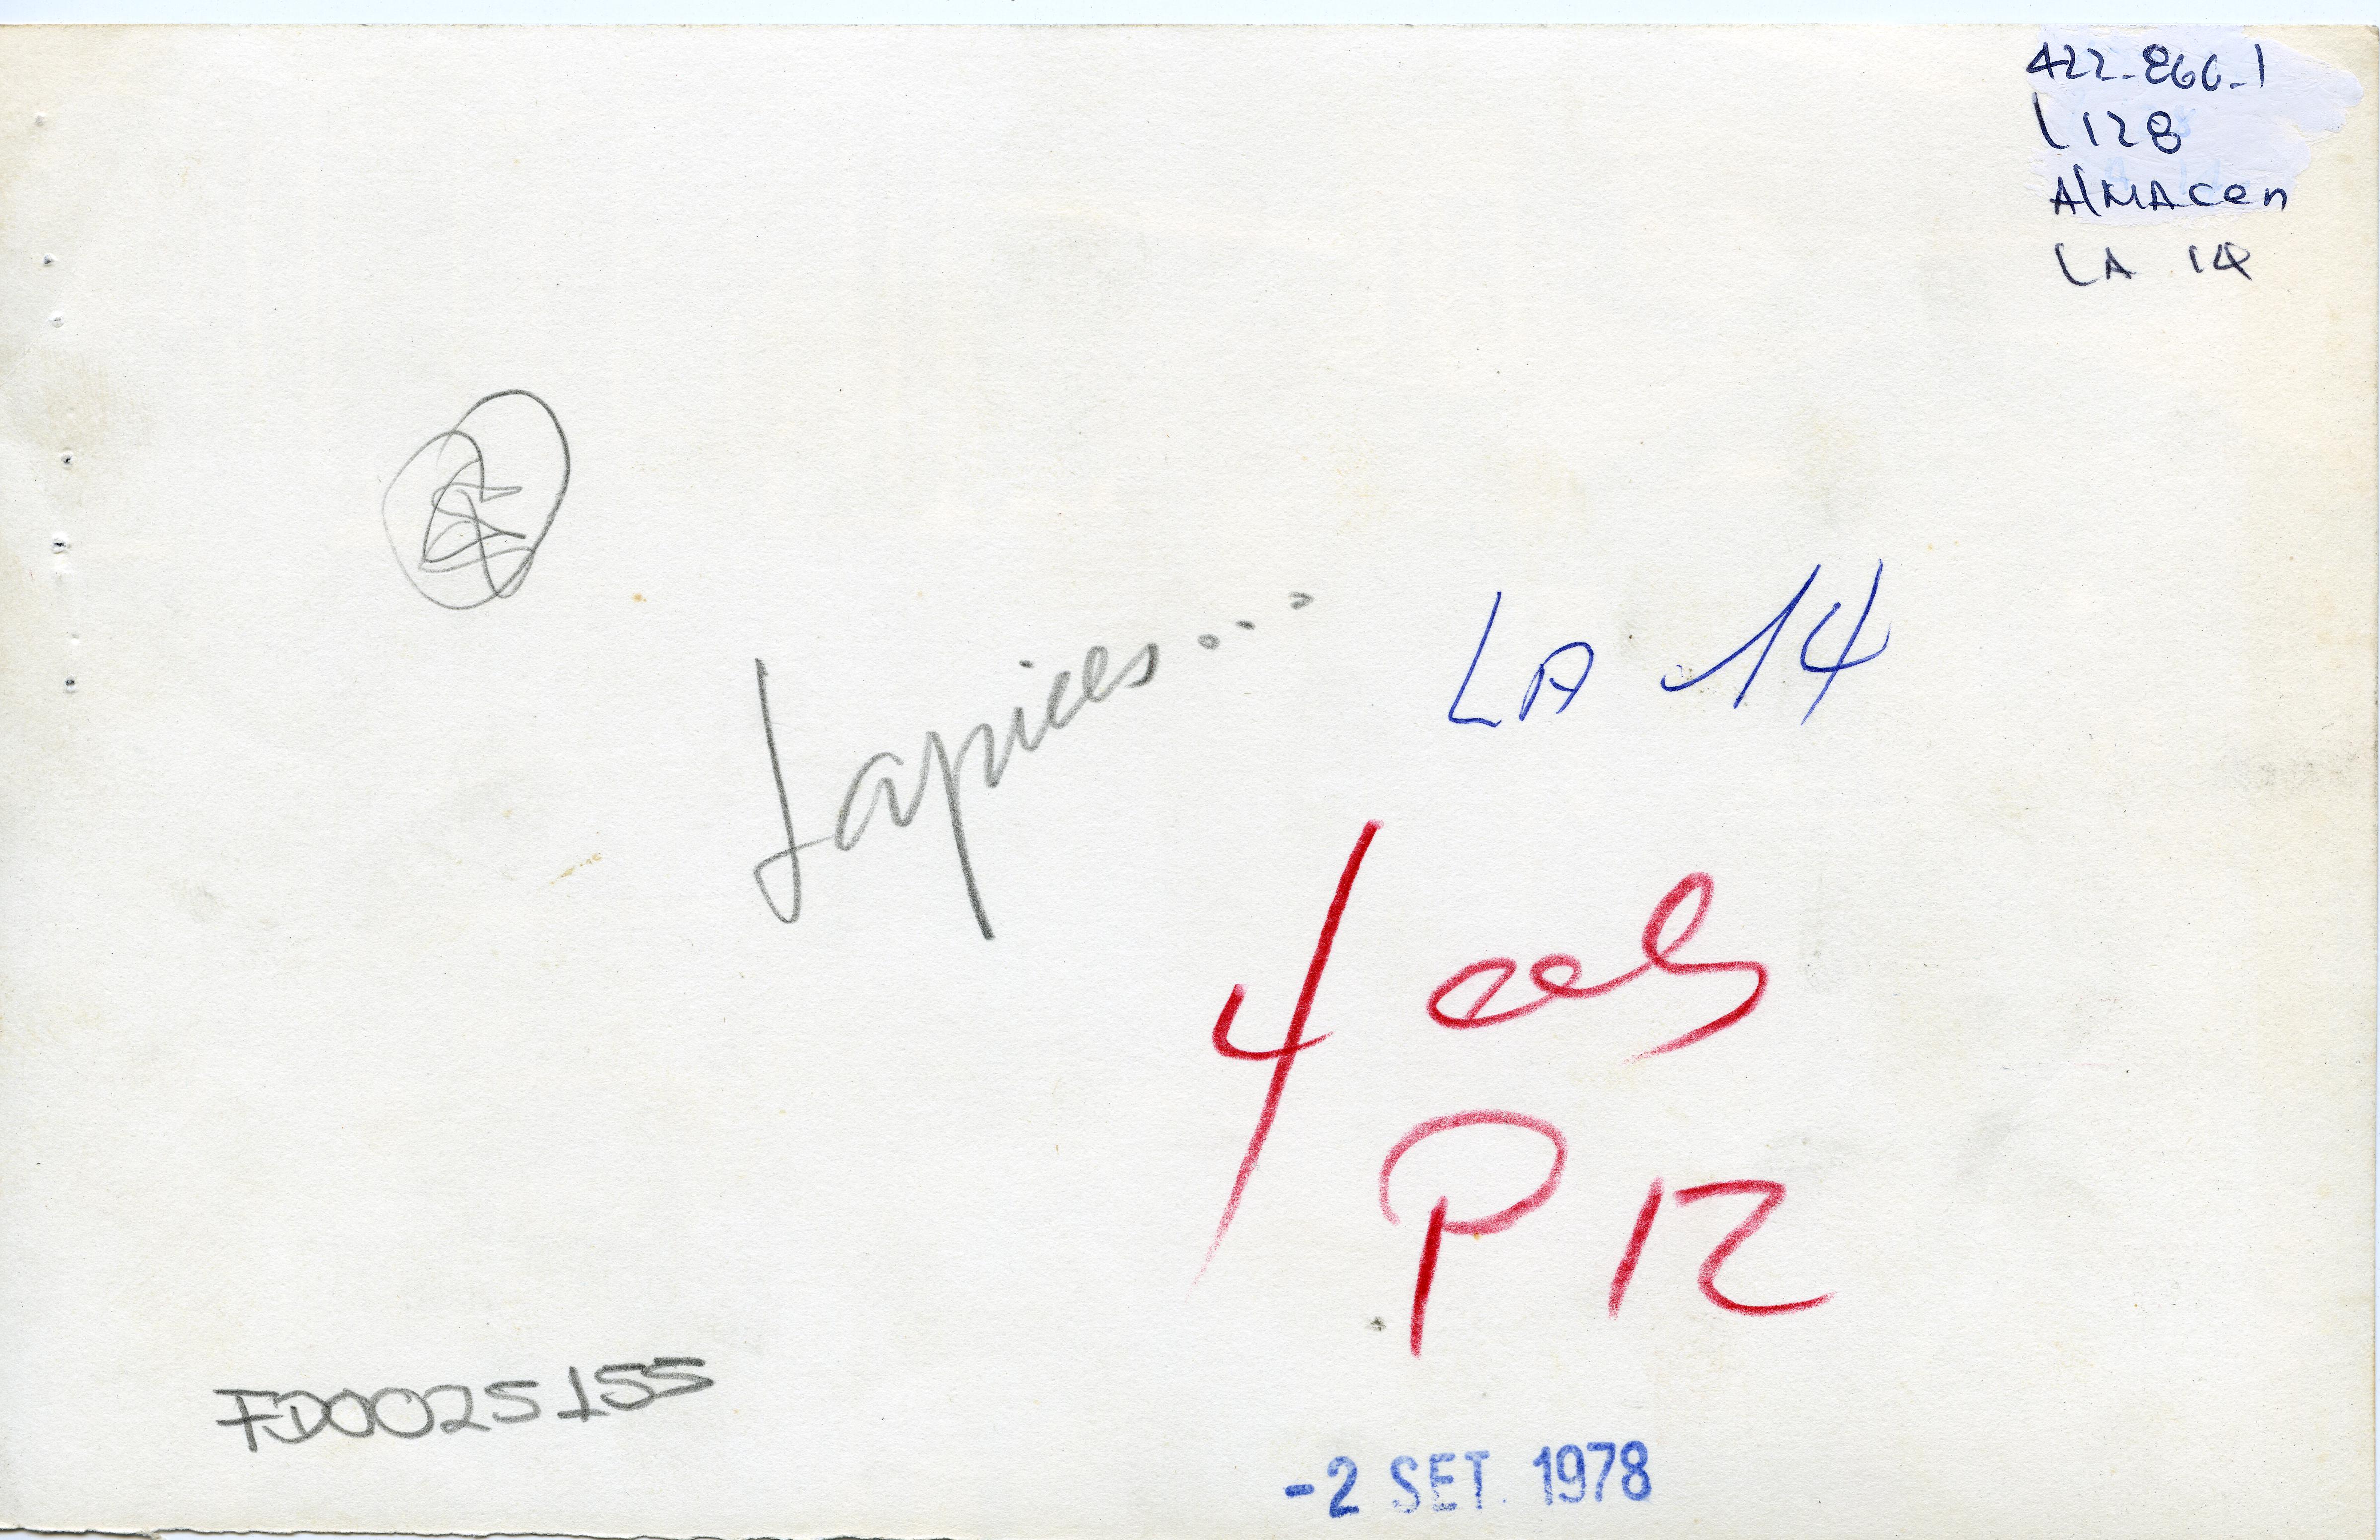 422-866-1
L128
AlMAcen
LA 14
Lapices...
LA 14
4 cols
P 12
FD0025155
-2 SET. 1978